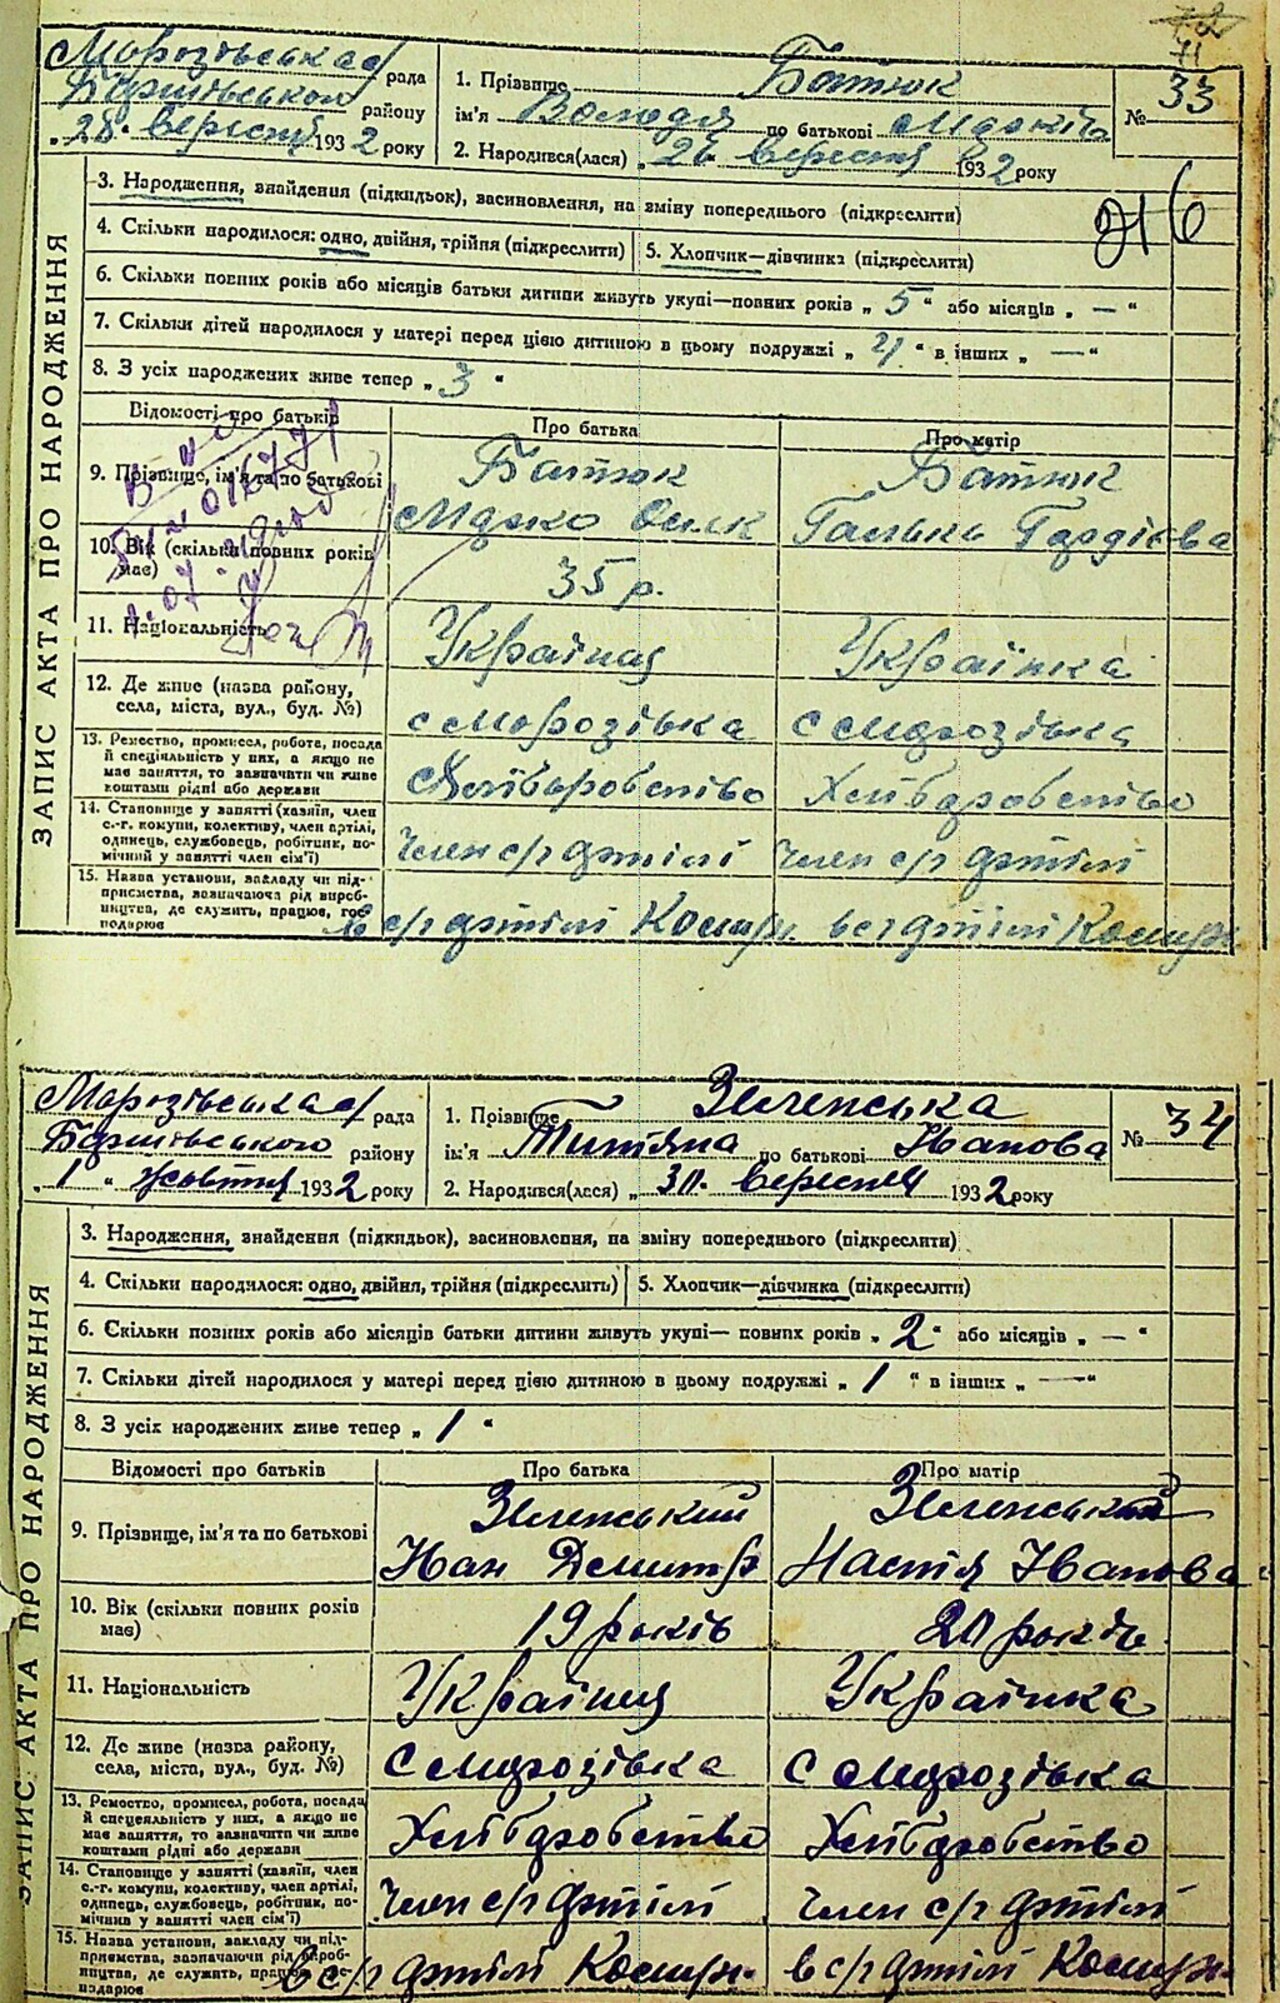 71
Морозівська с/рада
Баришівського району
„28“ вересня 1932 року
1. Прізвище Батюк
ім'я Володя по батькові Марків
№ 33
2. Народився(лася) „26“ вересня 1932 року
ЗАПИС АКТА ПРО НАРОДЖЕННЯ
3. Народження, знайдення (підкидьок), засиновлення, на зміну попереднього (підкреслити)
4. Скільки народилося: одно, двійня, трійня (підкреслити) 5. Хлопчик—дівчинка (підкреслити)
6. Скільки повних років або місяців батьки дитини живуть укупі—повних років „5“ або місяців „—“
7. Скільки дітей народилося у матері перед цією дитиною в цьому подружжі „4“ в інших „—“
8. З усіх народжених живе тепер „3“
Відомості про батьків Про батька Про матір
9. Прізвище, ім'я та по батькові Батюк Батюк
Марко Галька Гордієва
10. Вік (скільки повних років має) 35 р.
11. Національність Українця Українка
12. Де живе (назва району, села, міста, вул., буд. №) с Морозівка с Морозівка
13. Ремество, промисел, робота, посада
й спеціяльність у них, а якщо не
має заняття, то зазначити чи живе
коштами рідні або держави Хліборобство Хліборобство
14. Становище у занятті (хазяїн, член
с.-г. комуни, колективу, член артілі,
одинець, службовець, робітник, по-
мічний у занятті член сім'ї) Член с/г артілі Член с/г артілі
15. Назва установи, закладу чи під-
приємства, зазначаючи рід вироб-
ництва, де служить, працює, гос-
подарює в с/г артілі в с/г артілі
Морозівська с/рада
Баришівського району
„1“ жовтня 1932 року
1. Прізвище Зеленська
ім'я Титяна по батькові Іванова
№ 34
2. Народився(лася) „30“ вересня 1932 року
ЗАПИС АКТА ПРО НАРОДЖЕННЯ
3. Народження, знайдення (підкидьок), засиновлення, на зміну попереднього (підкреслити)
4. Скільки народилося: одно, двійня, трійня (підкреслить) 5. Хлопчик—дівчинка (підкреслити)
6. Скільки повних років або місяців батьки дитини живуть укупі— повних років „2“ або місяців „—“
7. Скільки дітей народилося у матері перед цією дитиною в цьому подружжі „1“ в інших „—“
8. З усіх народжених живе тепер „1“
Відомості про батьків Про батька Про матір
9. Прізвище, ім'я та по батькові Зеленський Зеленський
Іван Демитр Настя Іванова
10. Вік (скільки повних років має) 19 років 20 років
11. Національність Українця Українка
12. Де живе (назва району, села, міста, вул., буд. №) с Морозівка с Морозівка
13. Ремоство, промисел, робота, посада
й спецеяльність у них, а якщо не
має заняття, то зазначити чи живе
коштами рідні або держави Хліборобство Хліборобство
14. Становище у занятті (хазяїн, член
с.-г. комуни, колективу, член артілі,
одинець, службовець, робітник, по-
мічний у занятті член сім'ї) Член с/г артілі Член с/г артілі
15. Назва установи, закладу чи під-
приємства, зазначаючи рід вироб-
ництва, де служить, працює, гос-
подарює в с/г артілі в с/г артілі